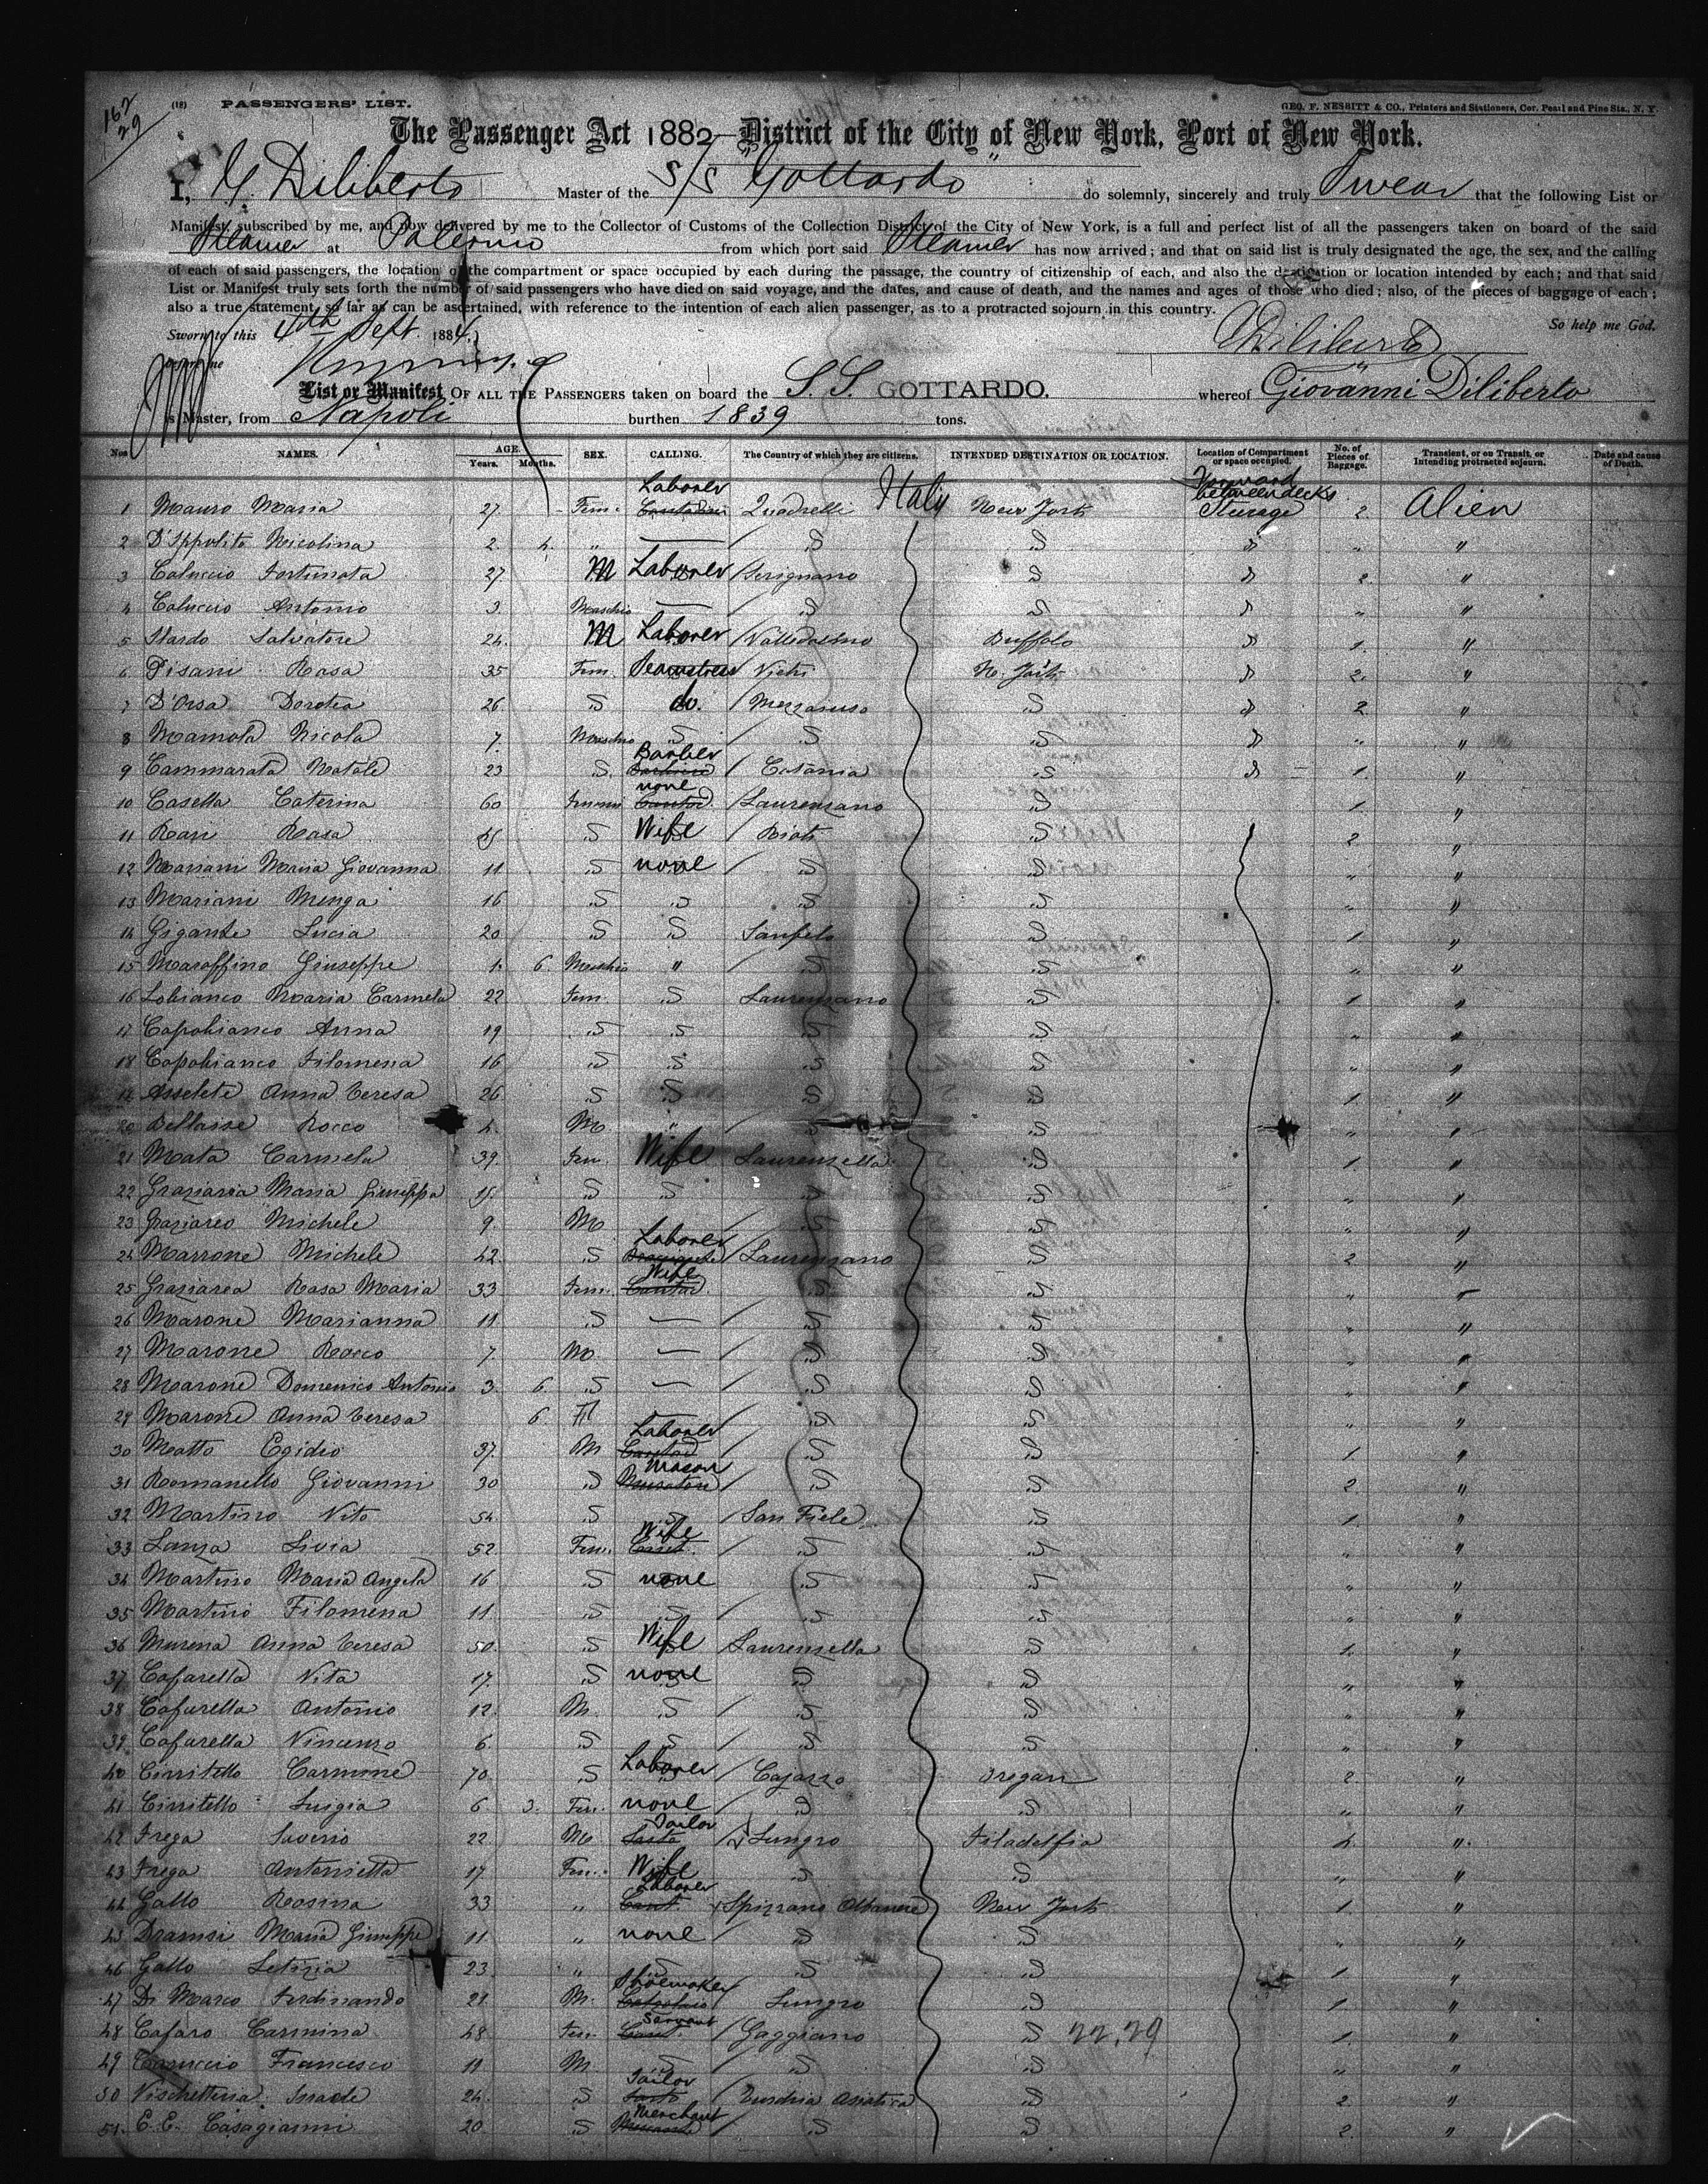 162
29
(12) PASSENGERS' LIST.
GEO. F. NESBITT & CO., Printers and Stationers, Cor. Pearl and Pine Sts., N. Y.
The Passenger Act 1882—District of the City of New York, Port of New York.
I, G. Diliberto Master of the S/S "Gottardo" do solemnly, sincerely and truly Swear that the following List or
Manifest, subscribed by me, and now delivered by me to the Collector of Customs of the Collection District of the City of New York, is a full and perfect list of all the passengers taken on board of the said
Steamer at Palermo from which port said Steamer has now arrived; and that on said list is truly designated the age, the sex, and the calling
of each of said passengers, the location of the compartment or space occupied by each during the passage, the country of citizenship of each, and also the destination or location intended by each; and that said
List or Manifest truly sets forth the number of said passengers who have died on said voyage, and the dates, and cause of death, and the names and ages of those who died; also, of the pieces of baggage of each;
also a true statement, so far as can be ascertained, with reference to the intention of each alien passenger, as to a protracted sojourn in this country.
So help me God.
Sworn to this 4th Sept. 1884,
before me
GDiliberto
List or Manifest OF ALL THE PASSENGERS taken on board the S.S. GOTTARDO. whereof Giovanni Diliberto
is Master, from Napoli burthen 1839 tons.
Nos NAMES. AGE. Years. Months. SEX. CALLING. The Country of which they are citizens. INTENDED DESTINATION OR LOCATION. Location of Compartment or space occupied. No. of Pieces of Baggage. Transient, or on Transit, or Intending protracted sojourn. Date and cause of Death.
Laborer Forward between decks
1 Mauro Maria 27 Fem. Quadrelli Italy New York Steerage 2 Alien
2 D'Ippolito Nicolina 2. 4. " — " "
3 Coluccio Fortunata 27 M Laborer 2. "
4 Coluccio Antonio 3. Maschio — " "
5 Nardo Salvatore 24. M Laborer Valledolmo Buffalo 1. "
6 Pisani Rosa 35 Fem. Seamstress Vietri N. York 2. "
7 D'Orsa Dorotea 26 do. Mezzojuso 2 "
8 Mamola Nicola 7. Maschio " "
9 Cammarata Natale 23 Barber Catania 1. "
10 Casella Caterina 60 none Laurenzano 1. "
11 Rosa Wife 2 "
12 Mariani Maria Giovanna 11 none " "
13 Mariani Menga 16 " "
14 Gigante Lucia 20 Sanfele 1. "
15 Maroffino Giuseppe 1. 6 Maschio " " "
16 Lobianco Maria Carmela 22 Fem. Laurenzano 1 "
17 Capobianco Anna 19 " "
18 Capobianco Filomena 16 " "
19 Anna Teresa 26 1. "
20 Rocco 4. M " " "
21 Mata Carmela 39. Fem. Wife Laurenzella 1. "
22 Graziaria Maria Giuseppa " "
23 Graziareo Michele 9. M " "
24 Marrone Michele 42 Laborer Laurenzano 2 "
25 Graziarea Rosa Maria 33 Fem. Wife " "
26 Marone Marianna 11 — " "
27 Marone Rocco 7. M — " "
28 Marone Domenico Antonio 3. 6. — " "
29 Marone Anna Teresa 6. — " "
30 Motto Egidio 37. M Laborer 1. "
31 Romanello Giovanni 30 Mason 2. "
32 Martino Vito 54 San Fiele 1 "
33 Lanza Livia 52. Fem. Wife " "
34 Martino Maria Angela 16 none " "
35 Martino Filomena 11. " "
36 Murena Anna Teresa 50. Wife Laurenzella 1. "
37 Cafarella Vita 17. none " "
38 Cafarella Antonio 12. M. " "
39 Cafarella Vincenzo 6. " "
40 Cirritello Carmine 70. Laborer Cajazzo Oregan 2. "
41 Cirritello Luigia 6 3. Fem. none " "
42 Frega Saverio 22 M Tailor Lungro Filadelfia 2 "
43 Frega Antonietta 17 Fem. Wife " "
44 Gallo Rosina 33 " Laborer Spizzano Albanese New York 1 "
45 Dramsi Maria Giuseppe 11 " none " "
46 Gallo Letizia 23. " 1 "
47 Di Marco Ferdinando 21 M. Shoemaker Lungro 1. "
48 Cafaro Carmina 48 Fem. Servant Gaggiano 22,29 1. "
49 Francesco 11 M " "
50 24. Tailor 2. "
51. E. E. Casagianni 20 Merchant 2. "